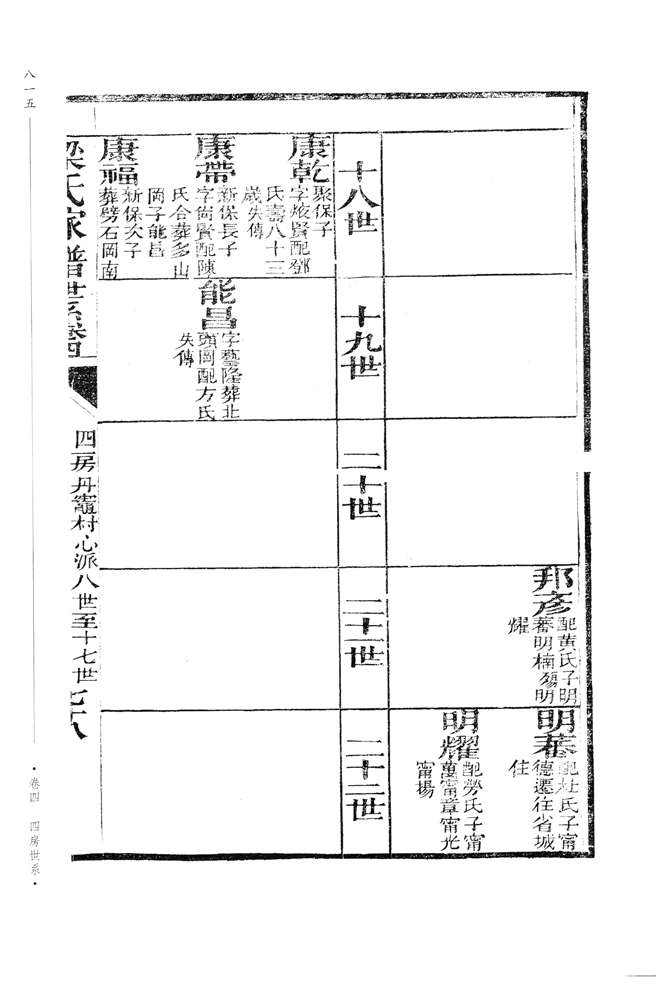 邦彥
配黃氏子明
蕃明楠殤明
耀
明蕃
配杜氏子甯
德遷往省城
住
明耀
配勞氏子甯
萬甯章甯光
甯場
十八世
十九世
二十世
二十一世
二十二世
康乾
聚保子
字焌賢配鄧
氏壽八十三
歲失傳
康帶
新保長子
字尚賢配陳
氏合葬多山
岡子能昌
康福
新保次子
葬劈石岡南
能昌
字藝隆葬北
頭岡配方氏
失傳
梁氏家譜世系卷四
四房丹竈村心派八世至十七世
七十八
八一五
·卷四 四房世系·